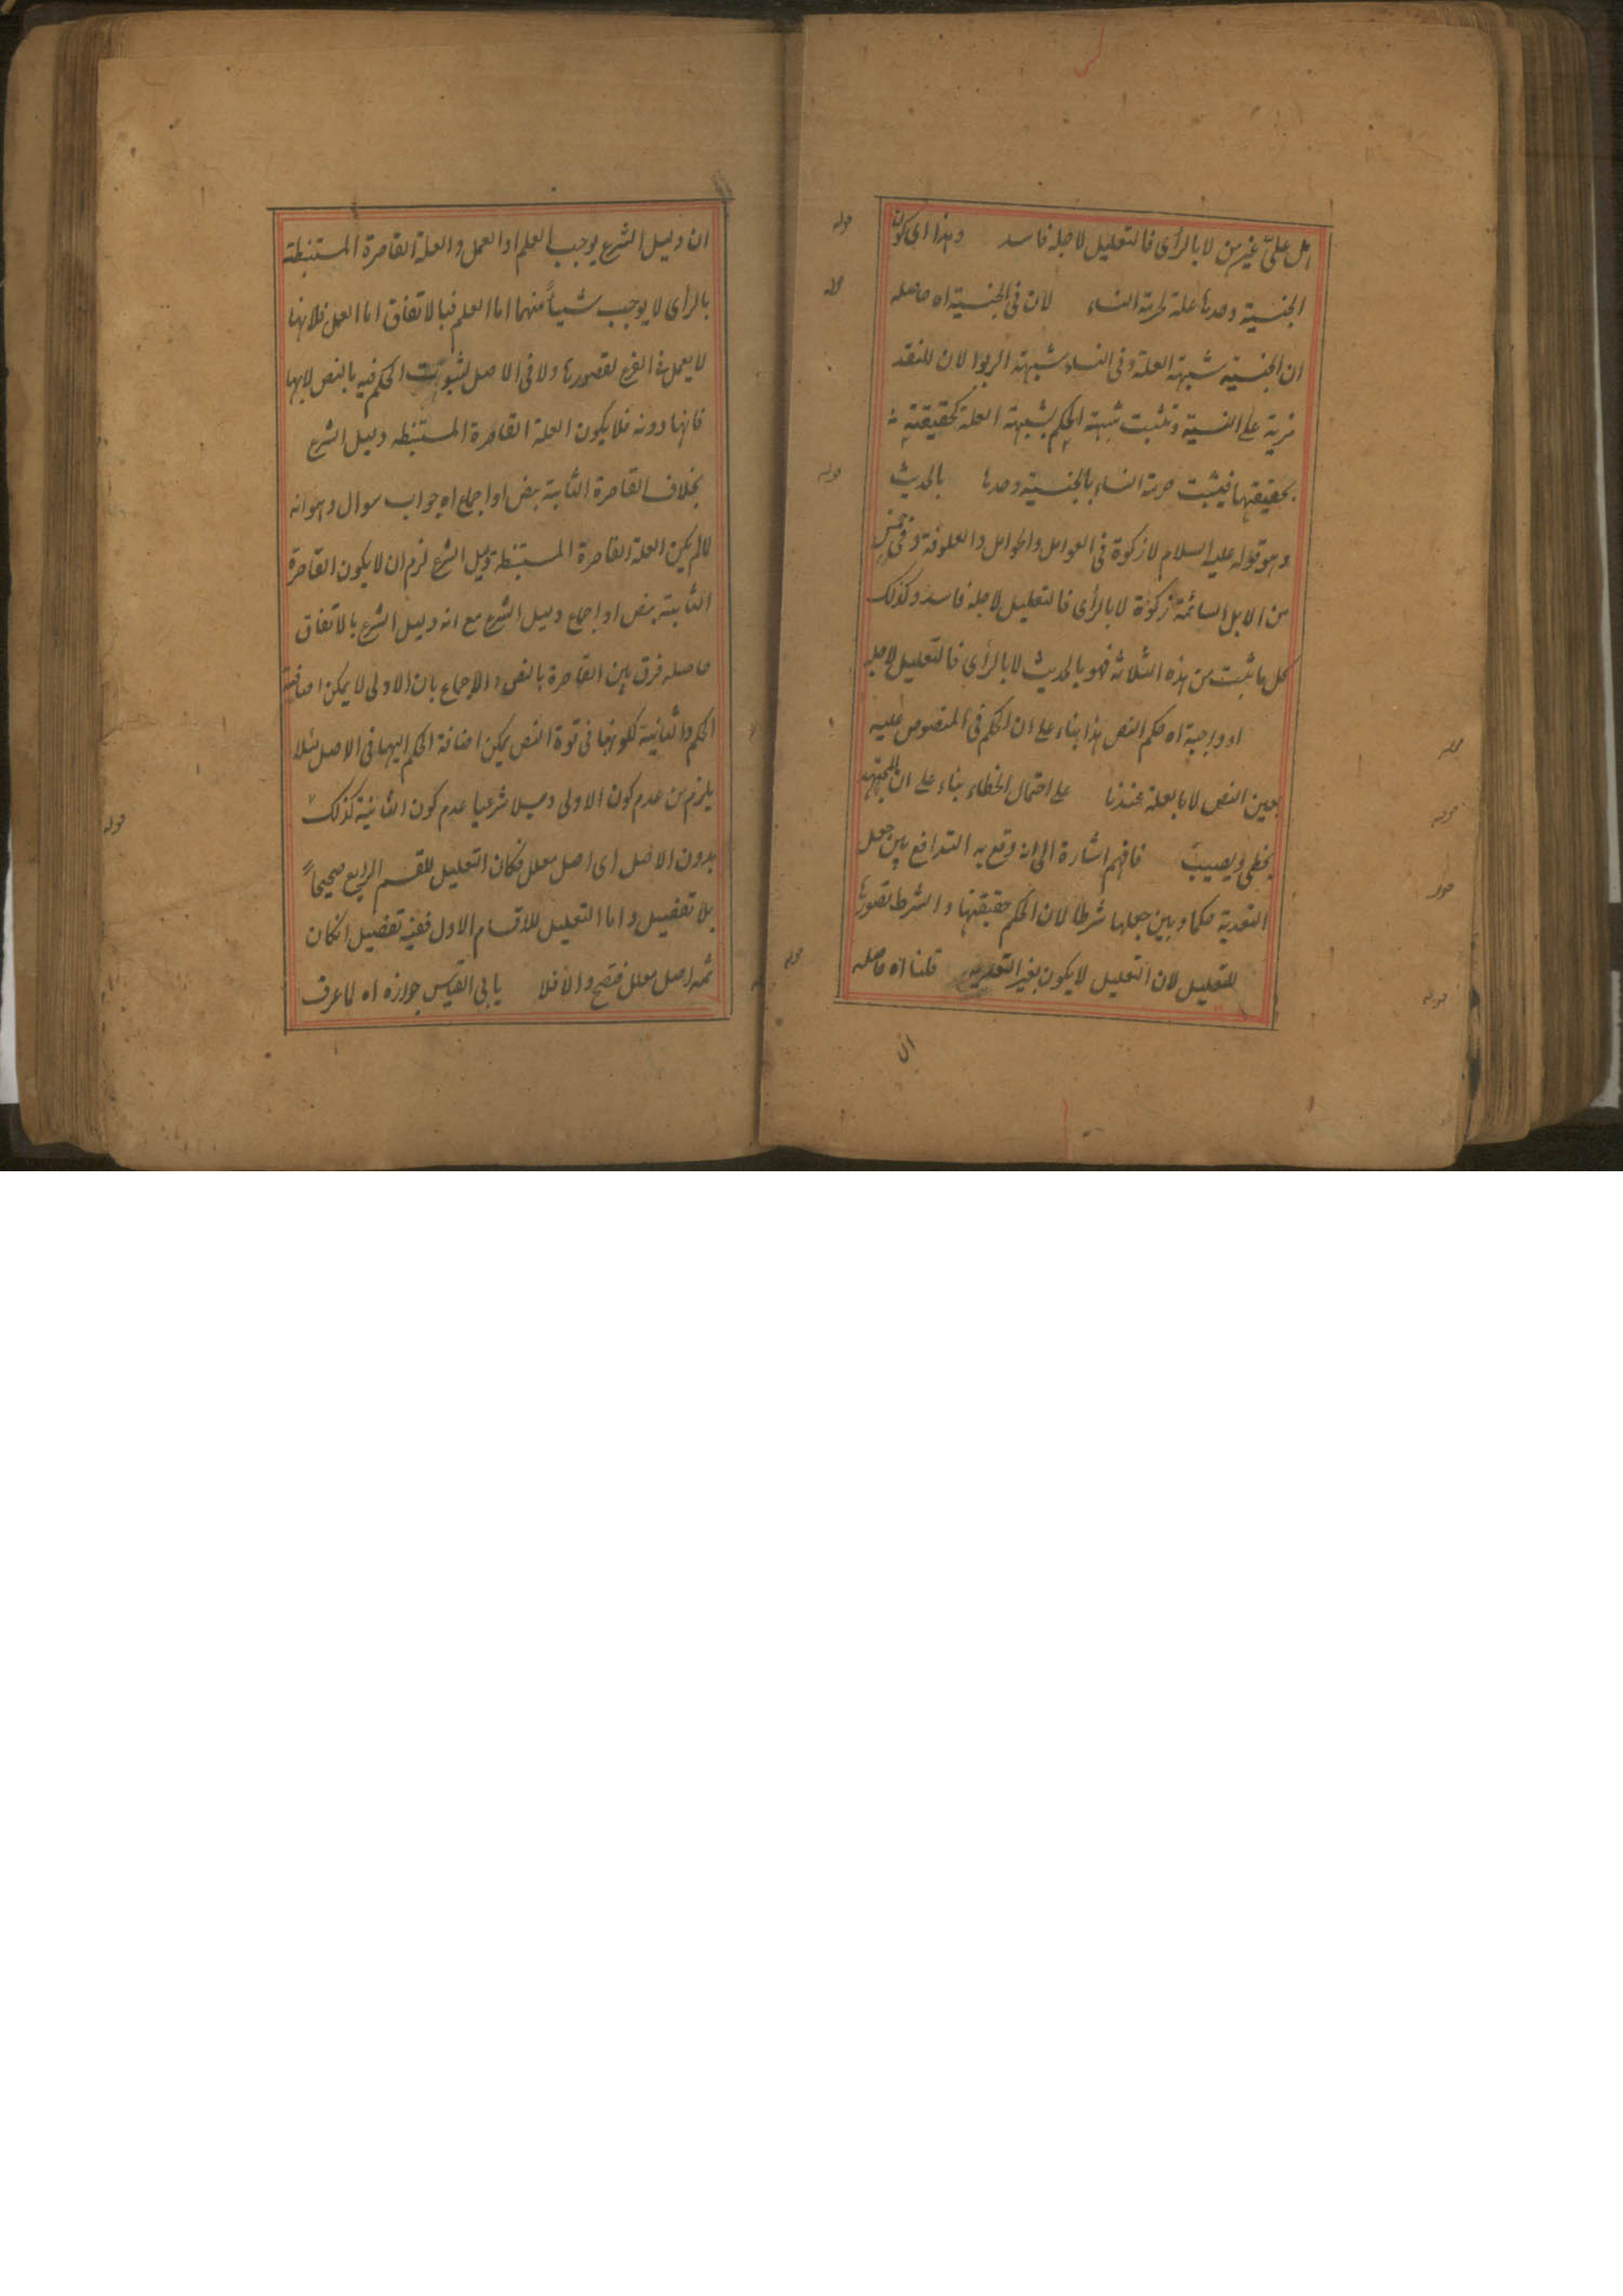 قوله
امل على غير من لا بالرأى فالتعليل لاجله فاسد وهذا اى كون
قوله
الجنسية وحدها علة لحرمة النساء لان فى الجنسية اه حاصله
ان الجنسية شبهة العلة وفى النساء شبهة الربوا لان للنقد
مزية على النسية وتثبت شبهة الحكم بشبهة العلة كحقيقته
قوله
بحقيقتها فيثبت حرمة النساء بالجنسية وحدها بالحديث
وهو قوله عليه السلام لا زكوة فى العوامل والحوامل والعلوفة وفى خمس
من الابل السائمة زكوة لا بالرأى فالتعليل لاجله فاسد وكذلك
كل ما ثبت من هذه الثلاثة فهو بالحديث لا بالرأى فالتعليل لاجله
قوله
او واجبة اه حكم النص هذا بناء على ان الحكم فى المنصوص عليه
قوله
بعين النص لا بالعلة عندنا على احتمال الخطاء بناء على ان المجتهد
قوله
يخطى ويصيب فافهم اشارة الى انه وقع به التدافع بين جعل
التعدية حكما وبين جعلها شرطا لان الحكم حقيقتها والشرط تصورها
قوله
للتعليل لان التعليل لا يكون بغير التعدية قلنا اه حاصله
ان
ان دليل الشرع يوجب العلم او العمل والعلة القاصرة المستنبطة
بالرأى لا يوجب شيأً منهما اما العلم فبالاتفاق اما العمل فلانها
لا يعمل فى الفرع لقصورها ولا فى الاصل لثبوت الحكم فيه بالنص لا بها
فانها دونه فلا يكون العلة القاصرة المستنبطة دليل الشرع
قوله
بخلاف القاصرة الثابتة بنص او اجماع اه جواب سوال وهو انه
لما لم يكن العلة القاصرة المستنبطة دليل الشرع لزم ان لا يكون القاصرة
الثابتة بنص او اجماع دليل الشرع مع انه دليل الشرع بالاتفاق
حاصله فرق بين القاصرة بالنص والاجماع بان الاولى لا يمكن اضافة
الحكم والثانية لكونها فى قوة النص يمكن اضافة الحكم اليها فى الاصل فلا
يلزم من عدم كون الاولى دليلا شرعيا عدم كون الثانية كذلك
قوله
بدون الاصل اى اصل معلل فكان التعليل للقسم الرابع صحيحاً
بلا تفصيل واما التعليل للاقسام الاول ففيه تفصيل ان كان
قوله
ثمه اصل معلل فتصح والا فلا يابى القياس جوازه اه لما عرف